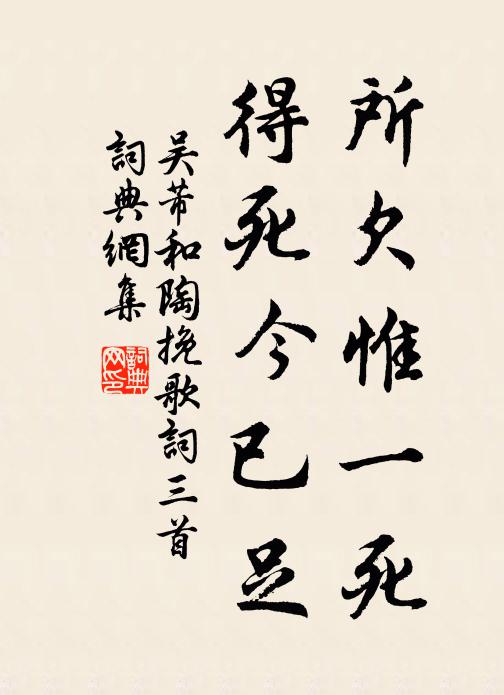 所欠惟一死
得死今已足
吴芾和陶挽歌詞三首
詞典網集
詞典网印